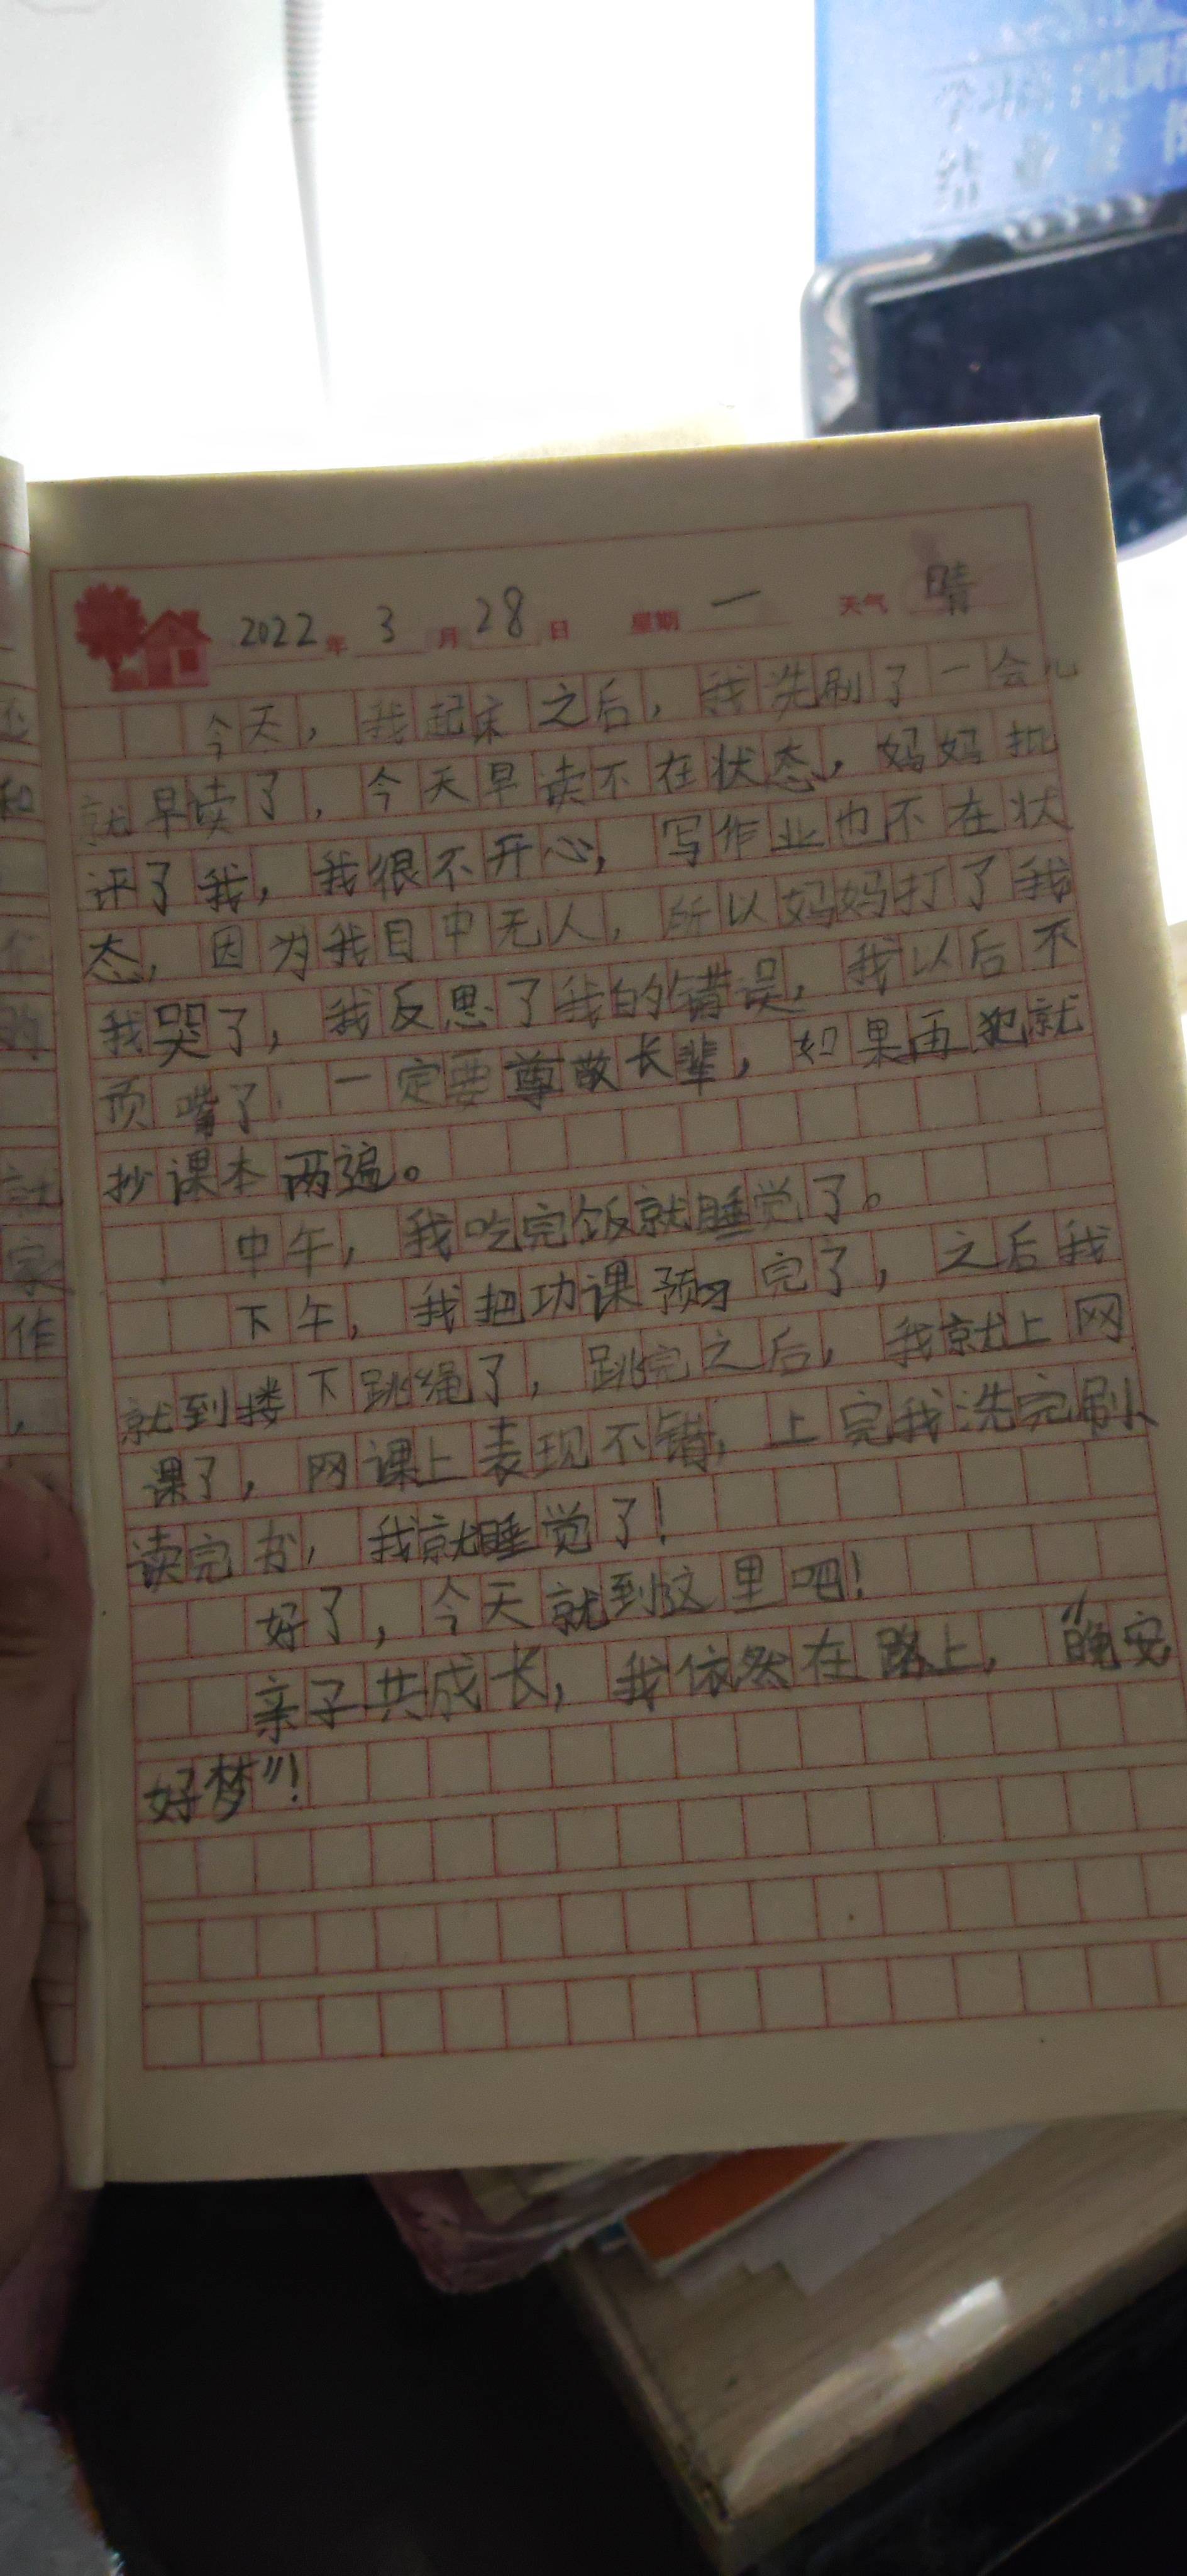 学习
结业证
2022年3月28日 星期一 天气晴
今天，我起床之后，我洗刷了一会儿
就早读了，今天早读不在状态，妈妈批
评了我，我很不开心，写作业也不在状
态，因为我目中无人，所以妈妈打了我
我哭了，我反思了我的错误，我以后不
顶嘴了 一定要尊敬长辈，如果再犯就
抄课本两遍。
中午，我吃完饭就睡觉了。
下午，我把功课预习完了，之后我
就到楼下跳绳了，跳完之后，我就上网
课了，网课上表现不错，上完我洗完刷
读完书，我就睡觉了！
好了，今天就到这里吧！
亲子共成长，我依然在路上，“晚安
好梦”！
和
就
家
作
，